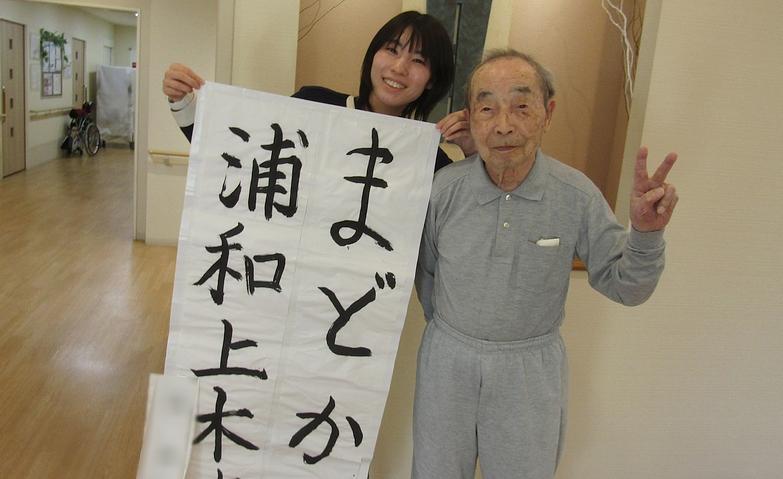 まどか
浦和上木